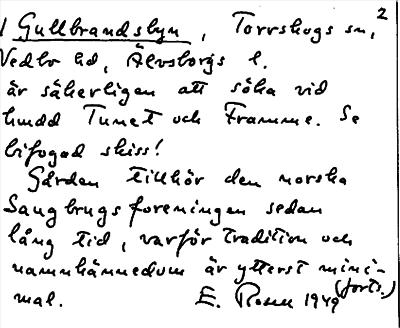 2
1 Gullbrandsbyn, Torrskogs sn,
Vedbo hd, Älvsborgs l.
är säkerligen att söka vid
hmdd Tunet och Framme. Se
bifogad skiss!
Gården tillhör den norska
Saugbrugsforeningen sedan
lång tid, varför tradition och
namnkännedom är ytterst mini-
mal. E. Rosell 1949 (forts.)